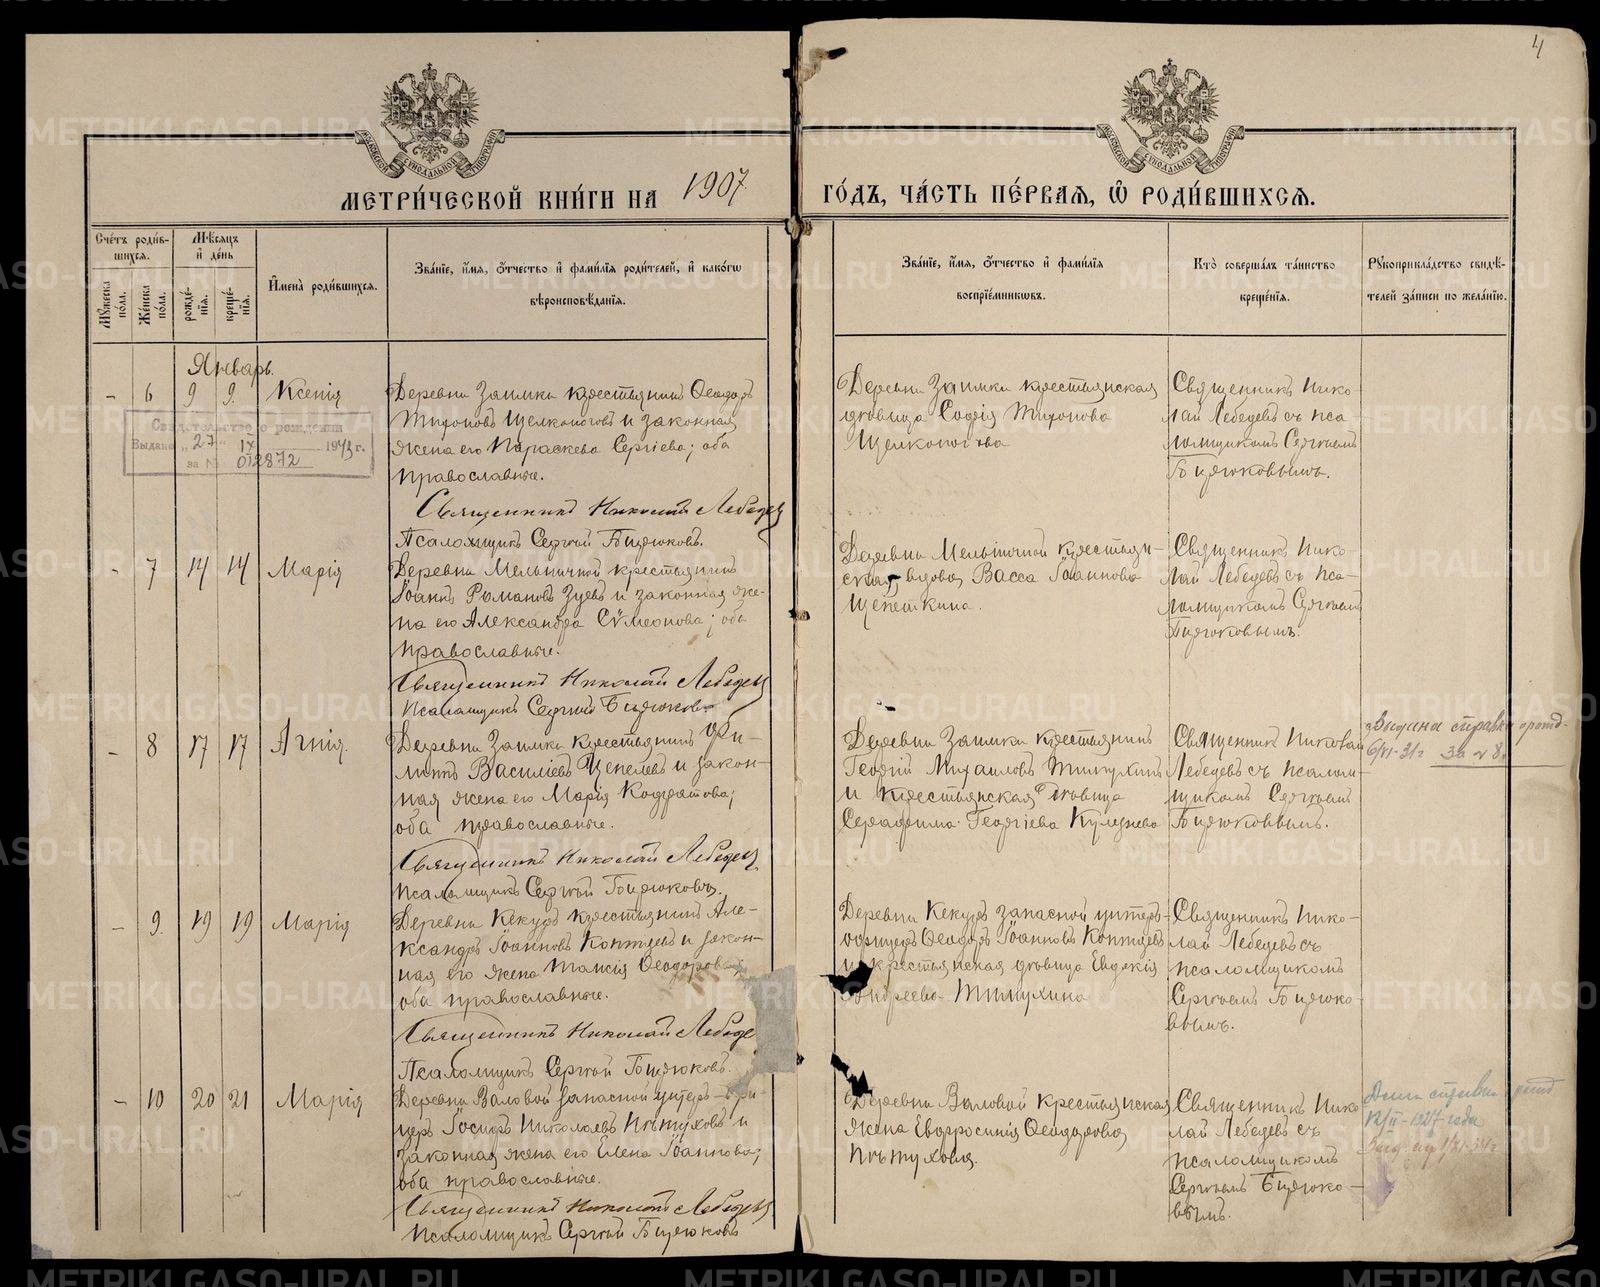 4
МЕТРИ́ЧЕСКОЙ КНИ́ГИ НА 1907 ГО́ДЪ, ЧА́СТЬ ПЕ́РВАЯ, Ѽ РОДИ́ВШИХСЯ.
Счéтъ роди́в-
шихся.
Му́жеска по́ла.
Же́нска по́ла.
Мѣ́сяцъ и де́нь
рожде́нїя.
креще́нїя.
Имена̀ роди́вшихся.
Зва́нїе, и́мя, о́тчество и фами́лїя роди́телей, и како́гѡ
вѣроисповѣ́данїя.
Зва́нїе, и́мя, о́тчество и фами́лїя
воспрїе́мниковъ.
Кто̀ соверша́лъ та́инство
креще́нїя.
Рукоприкла́дство свидѣ́-
телей за́писи по жела́нїю.
Январь.
- 6 9 9. Ксенія
Деревни Заимки крестьянинъ Ѳеодоръ
Тихоновъ Щелконоговъ и законная
жена его Параскева Сергіева; оба
православные.
Священникъ Николай Лебедевъ
Псаломщикъ Сергій Бирюковъ.
Деревни Заимки крестьянская
дѣвица Софія Тихонова
Щелконогова
Священникъ Нико-
лай Лебедевъ съ пса
ломщикомъ Сергіемъ
Бирюковымъ.
Свидетельство о рождении
Выдано „27" IX 1943 г.
за № 012872
- 7 14 14 Марія
Деревни Мельничной крестьянинъ
Іоаннъ Романовъ Зуевъ и законная же-
на его Александра Сѵмеонова; оба
православные.
Священникъ Николай Лебедевъ
Псаломщикъ Сергій Бирюковъ
Деревни Мельничной крестьян-
ская вдова Васса Іоаннова
Щекеткина.
Священникъ Нико-
лай Лебедевъ съ пса-
ломщикомъ Сергіемъ
Бирюковымъ.
- 8 17 17 Агнія.
Деревни Заимки крестьянинъ Фи-
липпъ Василіевъ Щепелевъ и закон-
ная жена его Марія Кодратова;
оба православные.
Священникъ Николай Лебедевъ
Псаломщикъ Сергій Бирюковъ.
Деревни Заимки крестьянинъ
Георгій Михаиловъ Тимухинъ
и крестьянская дѣвица
Серафима Георгіева
Священникъ Николай
Лебедевъ съ псалом-
щикомъ Сергіемъ
Бирюковымъ.
Выдана справка о рожд.
6/VI-31 г за № 8.
- 9. 19 19 Марія
Деревни Кекуръ крестьянинъ Але-
ксандръ Іоанновъ Коптяевъ и закон-
ная его жена Таисія Ѳеодорова
оба православные.
Священникъ Николай Лебеде
Псаломщикъ Сергій Бирюковъ.
Деревни Кекуръ запасной унтеръ-
офицеръ Ѳеодоръ Іоанновъ Коптяевъ
и крестьянская дѣвица Евдокія
Андреева Тимухина
Священникъ Нико-
лай Лебедевъ съ
псаломщикомъ
Сергіемъ Бирюко-
вымъ.
- 10 20 21 Марія
Деревни Валовой запасной унтеръ-офи-
церъ Іосифъ Николаевъ Пѣтуховъ и
законная жена его Елена Іоаннова;
оба православные.
Священникъ Николай Лебедевъ
Псаломщикъ Сергій Бирюковъ
Деревни Валовой крестьянская
жена Евфросинія Ѳеодорова
Пѣтухова.
Священникъ Нико
лай Лебедевъ съ
псаломщикомъ
Сергіемъ Бирюко-
вымъ.
METRIKI.GASO-URAL.RU